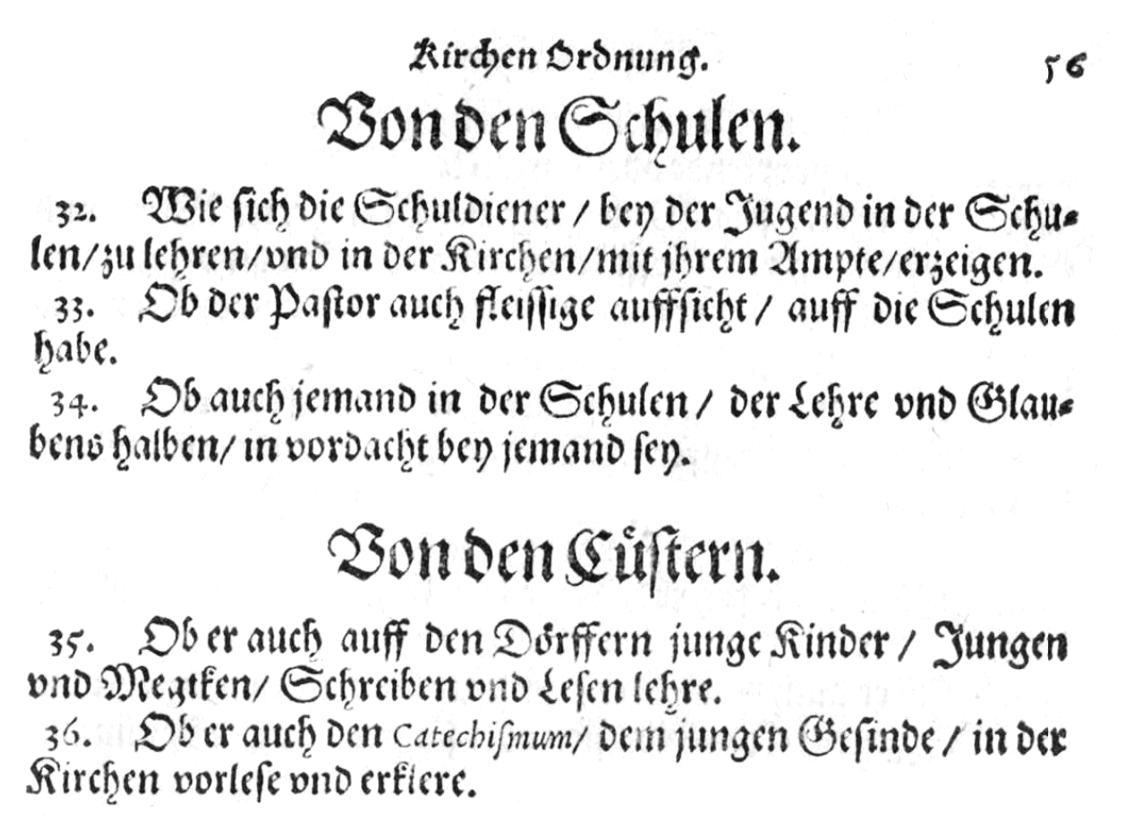 Kirchen Ordnung. 56
Von den Schulen.
32. Wie sich die Schuldiener / bey der Jugend in der Schu-
len/zu lehren/vnd in der Kirchen/mit jhrem Ampte/erzeigen.
33. Ob der Pastor auch fleissige auffsicht / auff die Schulen
habe.
34. Ob auch jemand in der Schulen / der Lehre vnd Glau-
bens halben/ in vordacht bey jemand sey.
Von den Cüstern.
35. Ob er auch auff den Dörffern junge Kinder / Jungen
vnd Megtken/ Schreiben vnd Lesen lehre.
36. Ob er auch den Catechismum/ dem jungen Gesinde / in der
Kirchen vorlese vnd erklere.